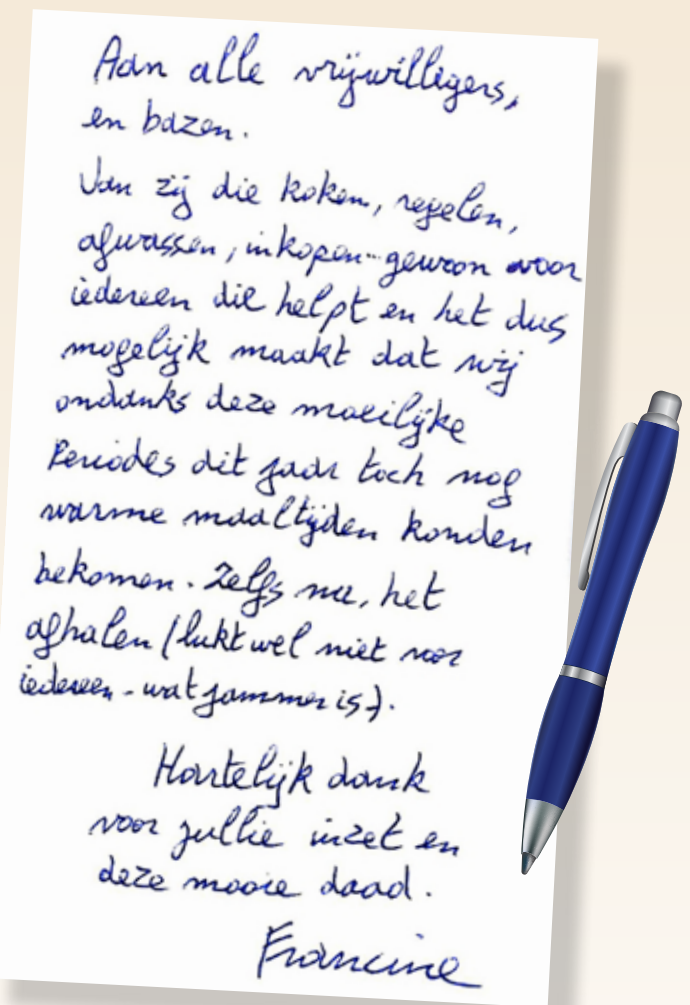 Aan alle vrijwilligers,
en bazen.
Van zij die koken, regelen,
afwassen, inkopen... gewoon voor
iedereen die helpt en het dus
mogelijk maakt dat wij
ondanks deze moeilijke
Periodes dit jaar toch nog
warme maaltijden konden
bekomen. Zelfs nu, het
afhalen (lukt wel niet voor
iedereen - wat jammer is).
Hartelijk dank
voor jullie inzet en
deze mooie daad.
Francine